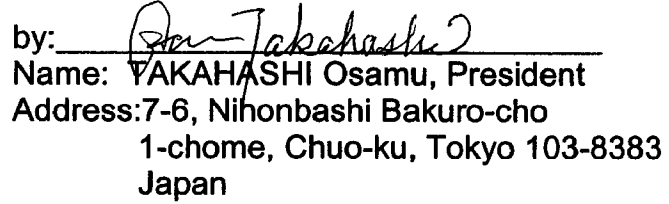 by: Osamu Takahashi
Name: TAKAHASHI Osamu, President
Address:7-6, Nihonbashi Bakuro-cho
1-chome, Chuo-ku, Tokyo 103-8383
Japan